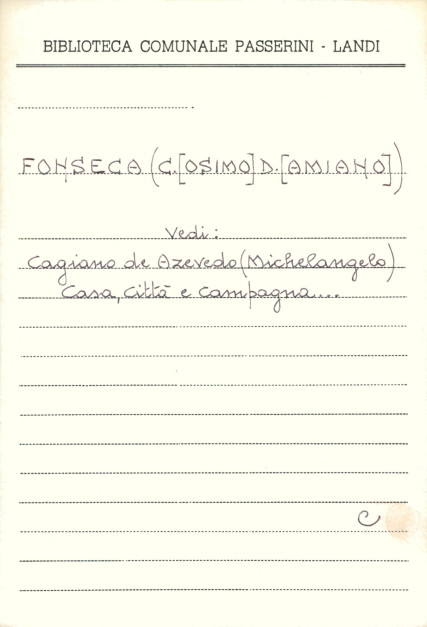 BIBLIOTECA COMUNALE PASSERINI - LANDI
FONSECA (C.[OSIMO] D.[AMIANO])
Vedi:
Cagiano de Azevedo (Michelangelo)
Casa, città e campagna...
C